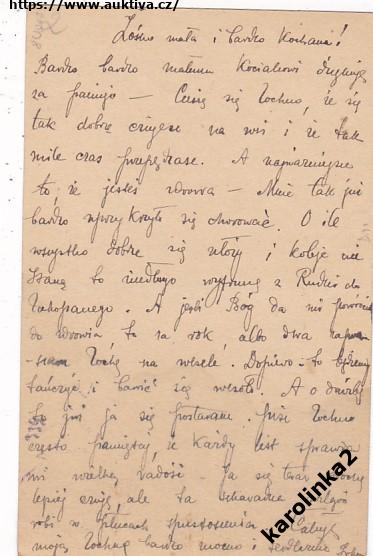 https://www.auktiva.cz/
Zośko mała i bardzo Kochana!
Bardzo bardzo małemu Kociakowi dziękuję
za pamięć — Cieszę się Zochno, że się
tak dobrze czujesz na wsi i że tak
mile czas przepędzasz. A najważniejsze
to, że jesteś zdrowa — Mnie tak już
bardzo uprzykrzyło się chorować. O ile
wszystko dobrze się ułoży i koleje nie
staną to niedługo wyjadę z Rudki do
Zakopanego. A jeśli Bóg da mi powrócić
do zdrowia to za rok, albo dwa
Zochę na wesele. Dopiero to będziemy
tańczyć i bawić się wesoło. A o
to już ja się postaram. Pisz Zochno
często pamiętaj, że Każdy list sprawia
mi wielką radość. Ja się teraz
lepiej czuję, ale ta
robi w płucach spustoszenia. Całuję
moją Zochnę bardzo mocno i serdecznie
karolinka2